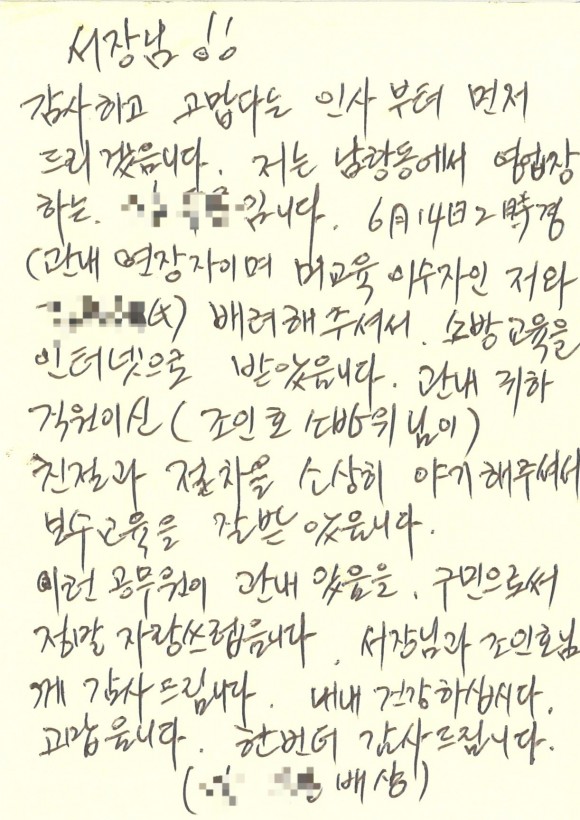 서장님!!
감사하고 고맙다는 인사부터 먼저
드리겠읍니다. 저는 남항동에서 영업장
하는. 입니다. 6月14日2時경
(관내 연장자이며 미교육 이수자인 저와
) 배려해주셔서. 소방교육을
인터넷으로 받았읍니다. 관내 귀하
직원이신 (조인호 소방위님이)
친절과 절차을 소상히 야기해주셔서
보수교육을 잘받았읍니다.
이런 공무원이 관내 있음을. 구민으로써
정말 자랑쓰럽읍니다. 서장님과 조인호님
께 감사드립니다. 내내 건강하십시다.
고맙읍니다. 한번더 감사드립니다.
( 배상)